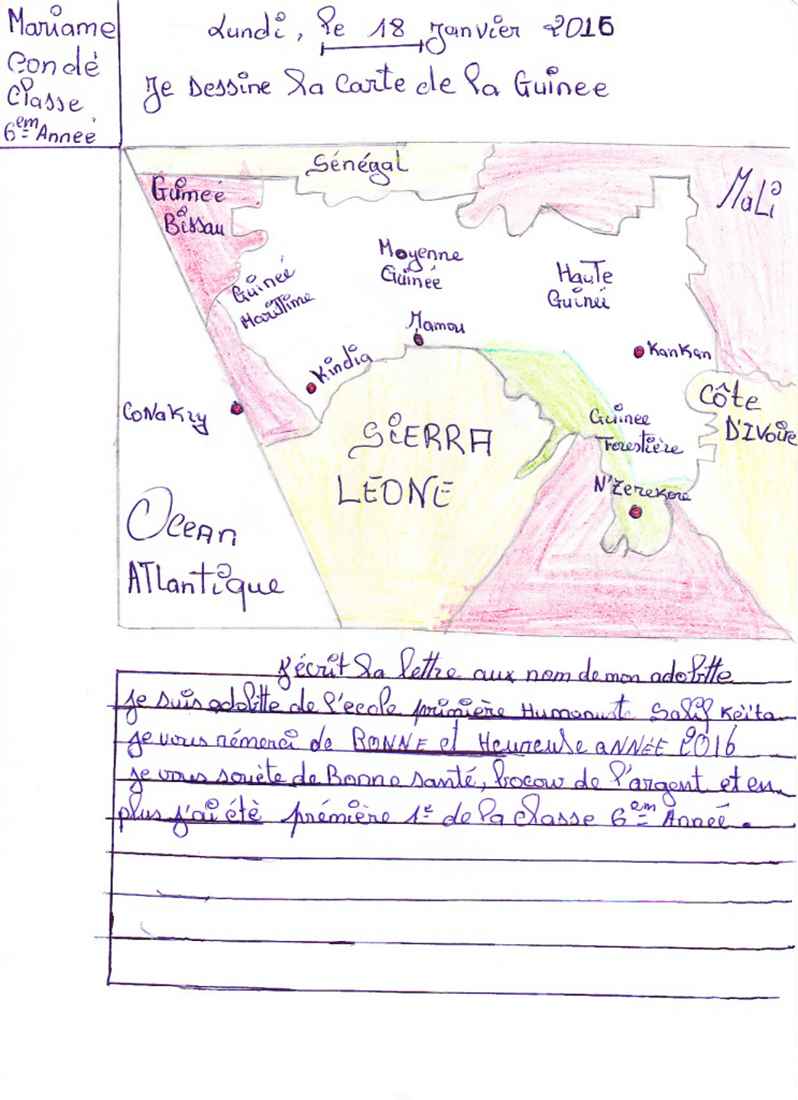 Mariame
Condé
Classe
6em Année
Lundi, le 18 Janvier 2016
Je dessine la carte de la Guinee
Sénégal
MaLi
Guineé
Bissau
Guineé
Maritime
Moyenne
Guineé
Haute
Guineé
Mamou
Kindia
KanKan
CoNaKry
Côte
D'IVoire
SiERRA
LEONE
Guinee
Forestière
N'Zerekore
Ocean
ATLantique
J'écrit la lettre aux nom de mon adolitte
Je suis adolitte de l'ecole primière Humoriste Salif Keïta
Je vous rémerci de BONNE et Heureuse aNNéE 2016
Je vous souète de Bonne santé, bocou de l'argent et en
plus j'ai étè prémière 1e de la classe 6em Anneé.